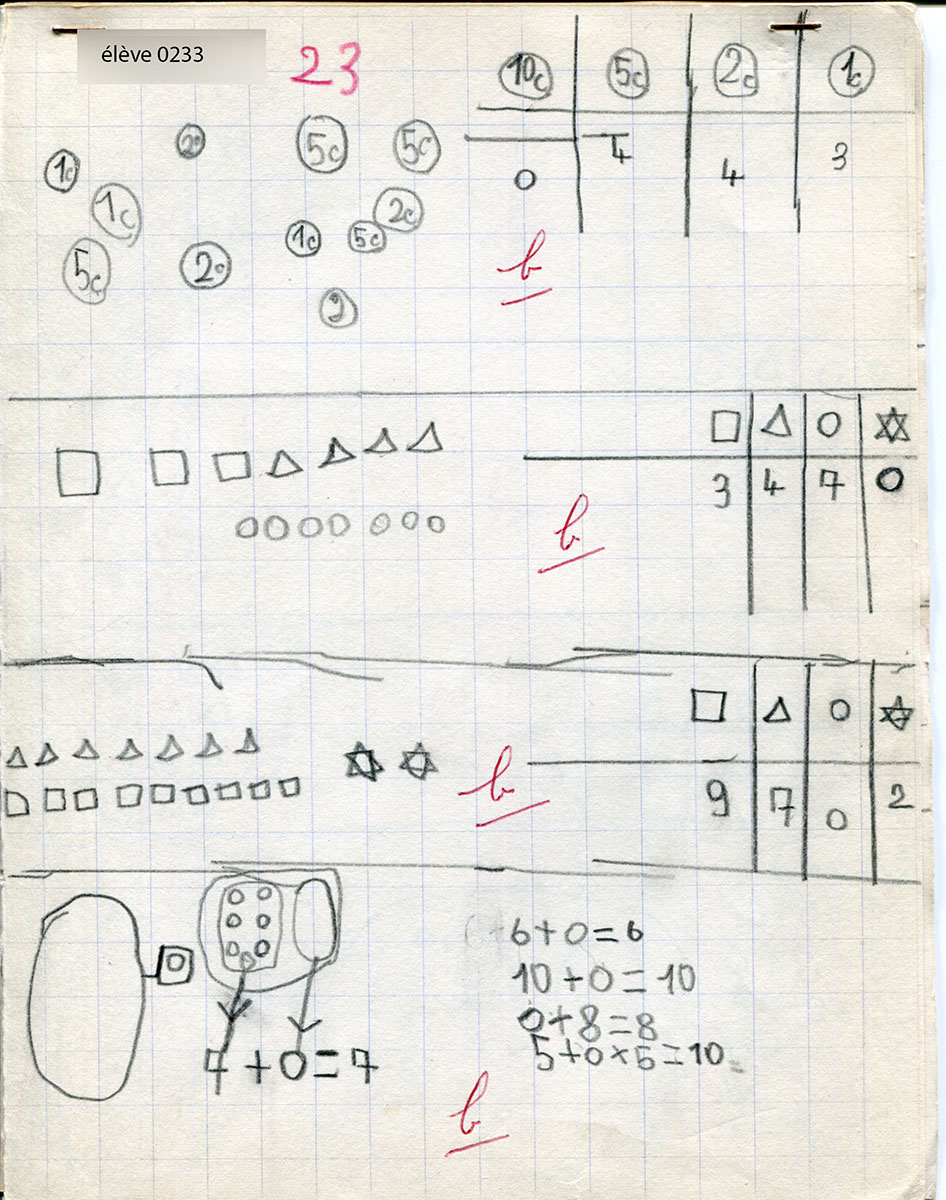 élève 0233
23
10c 5c 2c 1c
0 4 4 3
1c 2c 5c 5c
1c 2c
5c 2c 1c 5c
2
b
3 4 7 0
b
9 7 0 2
b
0
6+0=6
10+0=10
0+8=8
5+0×5=10
7+0=7
b